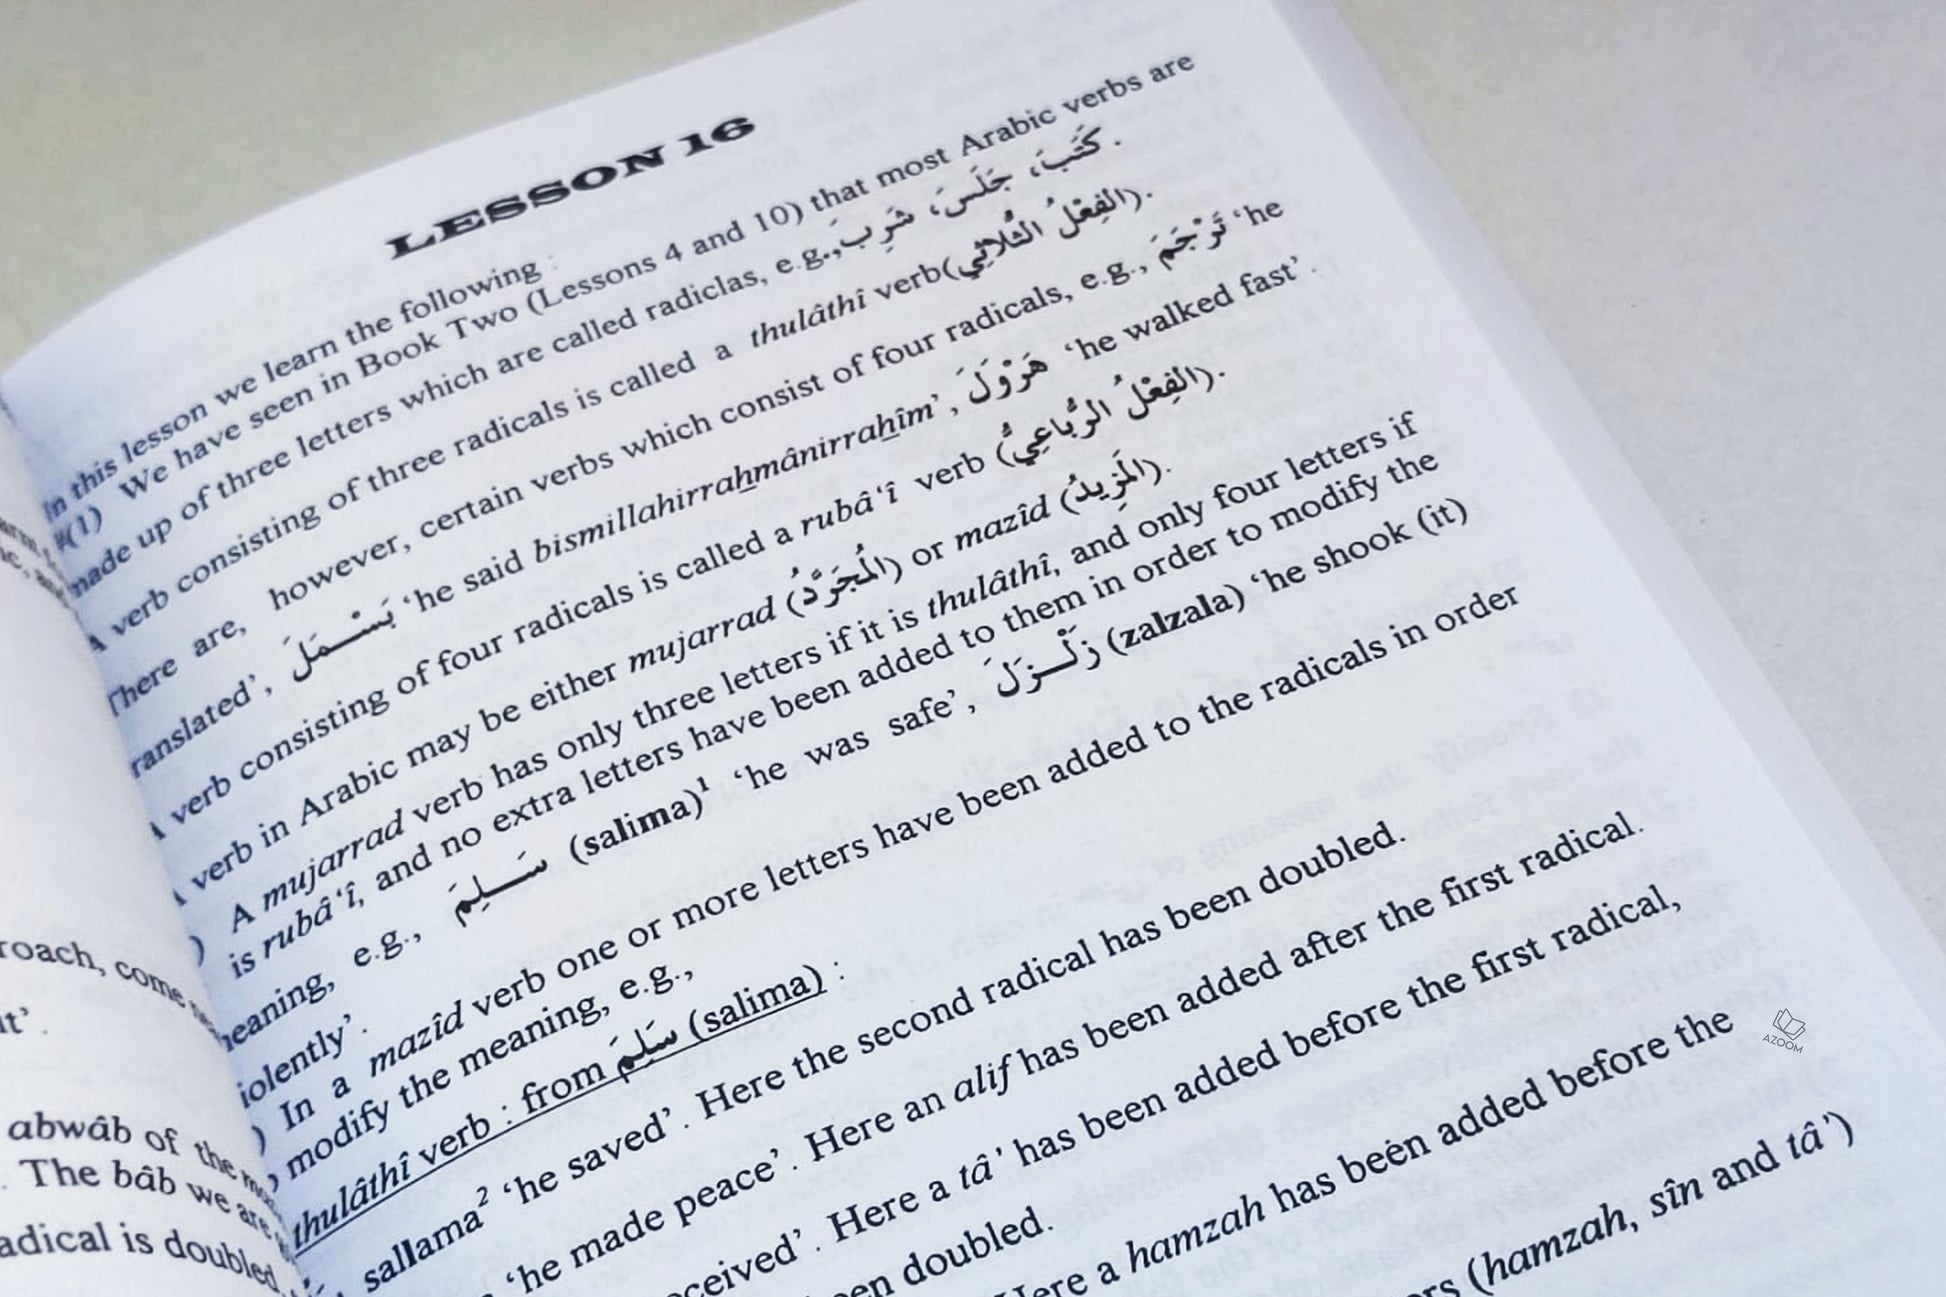 LESSON 16
In this lesson we learn the following :
#(1) We have seen in Book Two (Lessons 4 and 10) that most Arabic verbs are
made up of three letters which are called radiclas, e.g., كَتَبَ، جَلَسَ، شَرِبَ.
A verb consisting of three radicals is called a thulâthî verb (الفِعْلُ الثُّلاثِي).
There are, however, certain verbs which consist of four radicals, e.g., تَرْجَمَ ‘he
translated’, بَسْـمَلَ ‘he said bismillahirrahmânirrahîm’, هَرْوَلَ ‘he walked fast’.
A verb consisting of four radicals is called a rubâ‘î verb (الفِعْلُ الرُّباعِيُّ).
A verb in Arabic may be either mujarrad (المُجَرَّدُ) or mazîd (المَزِيدُ).
) A mujarrad verb has only three letters if it is thulâthî, and only four letters if
is rubâ‘î, and no extra letters have been added to them in order to modify the
meaning, e.g., سَـلِمَ (salima)¹ ‘he was safe’, زَلْـزَلَ (zalzala) ‘he shook (it)
iolently’.
) In a mazîd verb one or more letters have been added to the radicals in order
modify the meaning, e.g.,
thulâthî verb : from سَلِمَ (salima) :
sallama² ‘he saved’. Here the second radical has been doubled.
‘he made peace’. Here an alif has been added after the first radical.
ceived’. Here a tâ’ has been added before the first radical,
en doubled.
Here a hamzah has been added before the
ors (hamzah, sîn and tâ’)
roach, come
it’.
abwâb of the
. The bâb we are
adical is doubled.
AZOOM